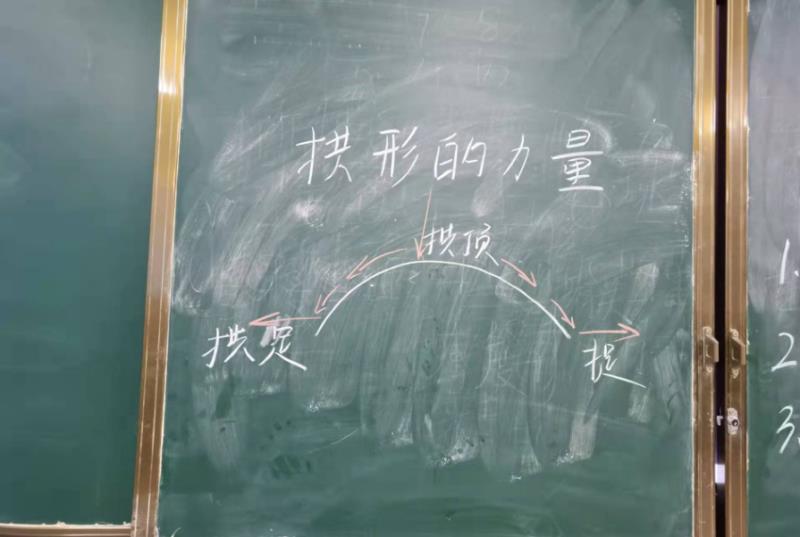 拱形的力量
拱顶
拱足
1.
2
3.